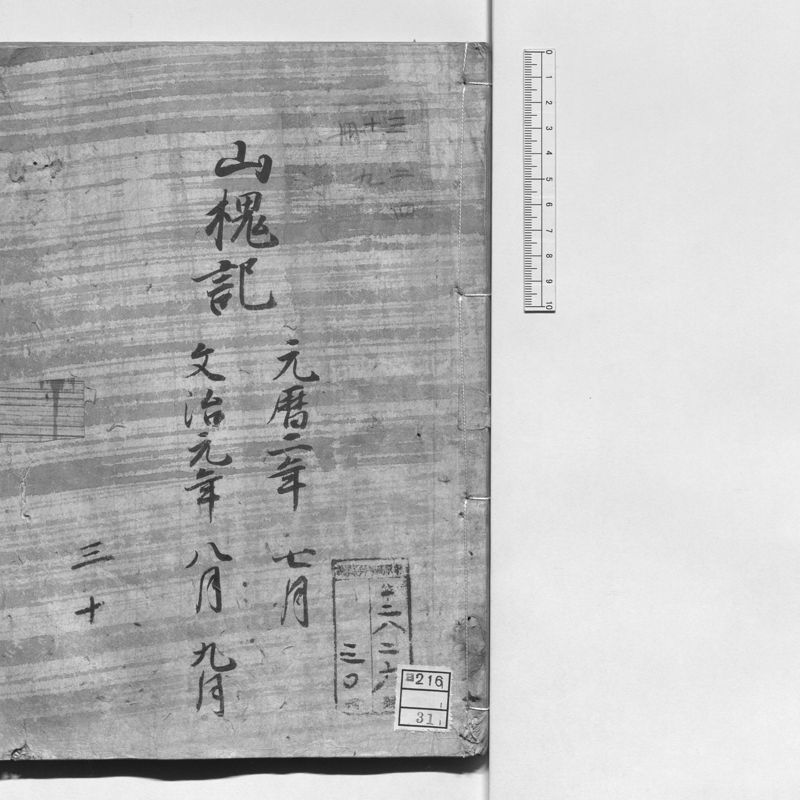 山槐記
元暦二年 七月
文治元年 八月 九月
三十
二八二十
三〇
216
31
0 1 2 3 4 5 6 7 8 9 10